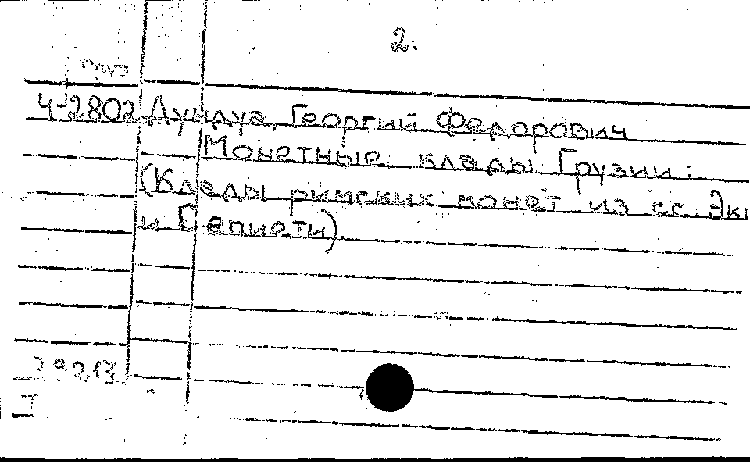 2.
Ч-2802 Дундуа, Георгий Федорович
Монетные клады Грузии:
(Клады римских монет из сс. Эки
и Сепиети)
29213
I